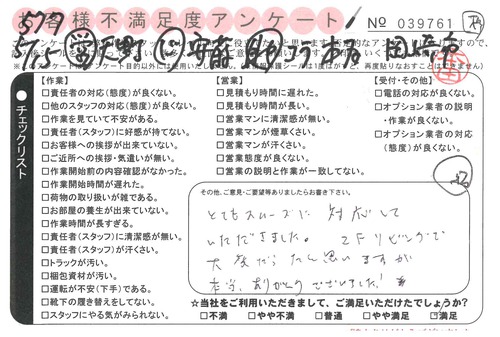 お客様不満足度アンケート
No 039761
579
岡崎市
チェックリスト
【作業】
□責任者の対応(態度)が良くない。
□他のスタッフの対応(態度)が良くない。
□作業を見ていて不安がある。
□責任者(スタッフ)に好感が持てない。
□お客様への挨拶が出来ていない。
□ご近所への挨拶・気遣いが無い。
□作業開始前の内容確認がなかった。
□作業開始時間が遅れた。
□荷物の取り扱いが雑である。
□お部屋の養生が出来ていない。
□作業時間が長すぎる。
□責任者(スタッフ)に清潔感が無い。
□責任者(スタッフ)が汗くさい。
□トラックが汚い。
□梱包資材が汚い。
□運転が不安(下手)である。
□靴下の履き替えをしてない。
□スタッフにやる気がみられない。
【営業】
□見積もり時間に遅れた。
□見積もり時間が長い。
□営業マンに清潔感が無い。
□営業マンが煙草くさい。
□営業マンが汗くさい。
□営業態度が良くない。
□営業の説明と作業が一致してない。
【受付・その他】
□電話の対応が良くない。
□オプション業者の説明
・作業が良くない。
□オプション業者の対応
(態度)が良くない。
その他、ご意見・ご要望等ありましたらお書き下さい。
とてもスムーズに 対応して
いただきました。 2Fリビングで
大変だったと思いますが
本当、ありがとうございました!
☆当社をご利用いただきまして、ご満足いただけたでしょうか?
□不満 □やや不満 □普通 □やや満足 □満足